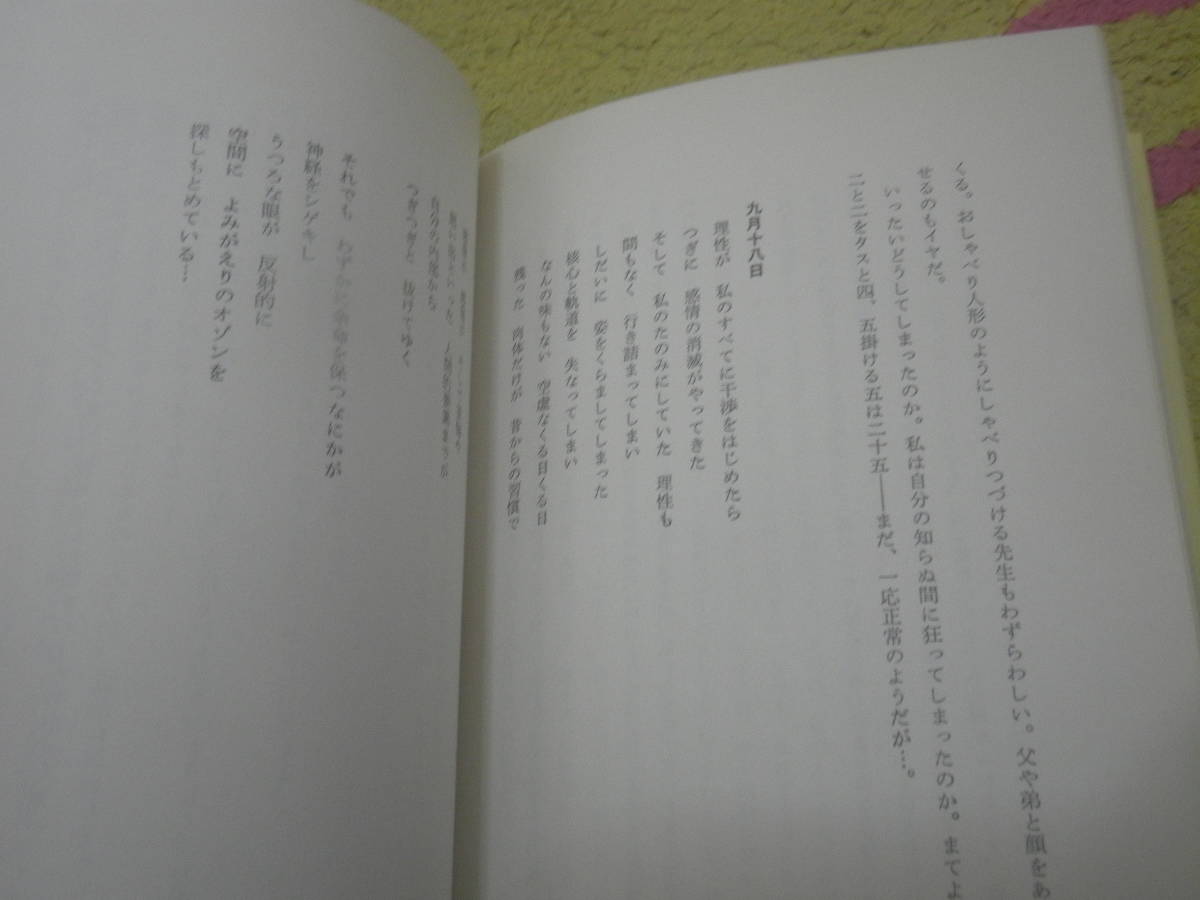 くる。おしゃべり人形のようにしゃべりつづける先生もわずらわしい。父や弟と顔をあ
せるのもイヤだ。
いったいどうしてしまったのか。私は自分の知らぬ間に狂ってしまったのか。まてよ
二と二をタスと四、五掛ける五は二十五――まだ、一応正常のようだが…。
九月十八日
理性が 私のすべてに干渉をはじめたら
つぎに 感情の消滅がやってきた
そして 私のたのみにしていた 理性も
間もなく 行き詰まってしまい
しだいに 姿をくらましてしまった
核心と軌道を 失なってしまい
なんの味もない 空虚なくる日くる日
残った 肉体だけが 昔からの習慣で
自分の内部から
つぎつぎと 抜けてゆく
それでも わずかに余命を保つなにかが
神経をシゲキし
うつろな眼が 反射的に
空間に よみがえりのオゾンを
探しもとめている…